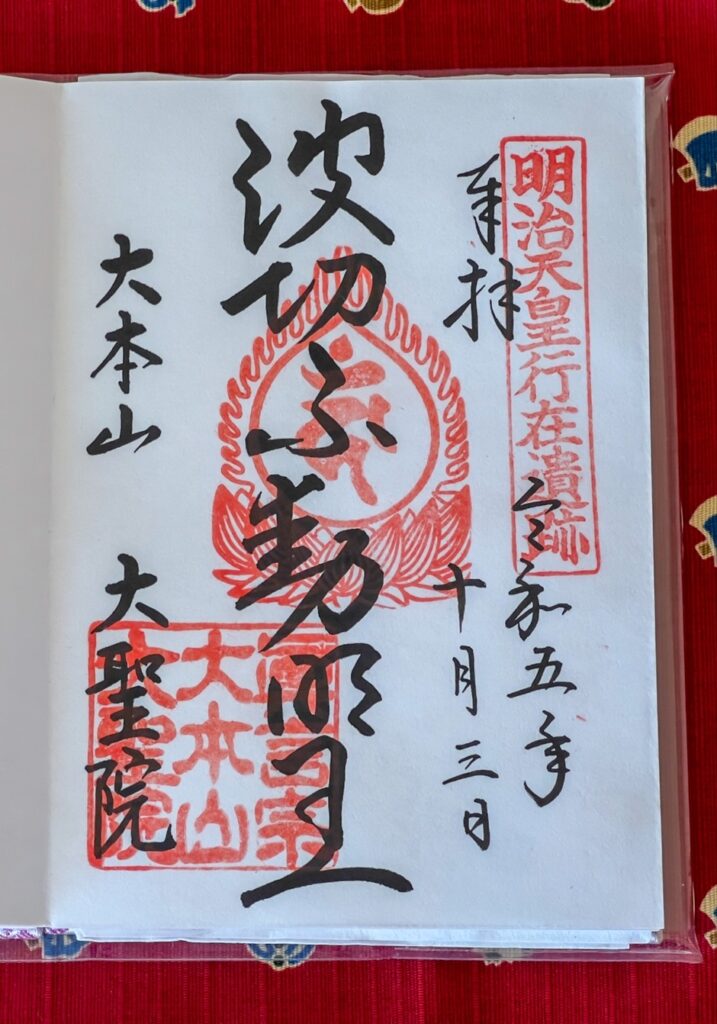 明治天皇行在遺跡
奉拝
令和五年
十月三日
波切不動明王
大本山 大聖院
真言宗
大本山
大聖院